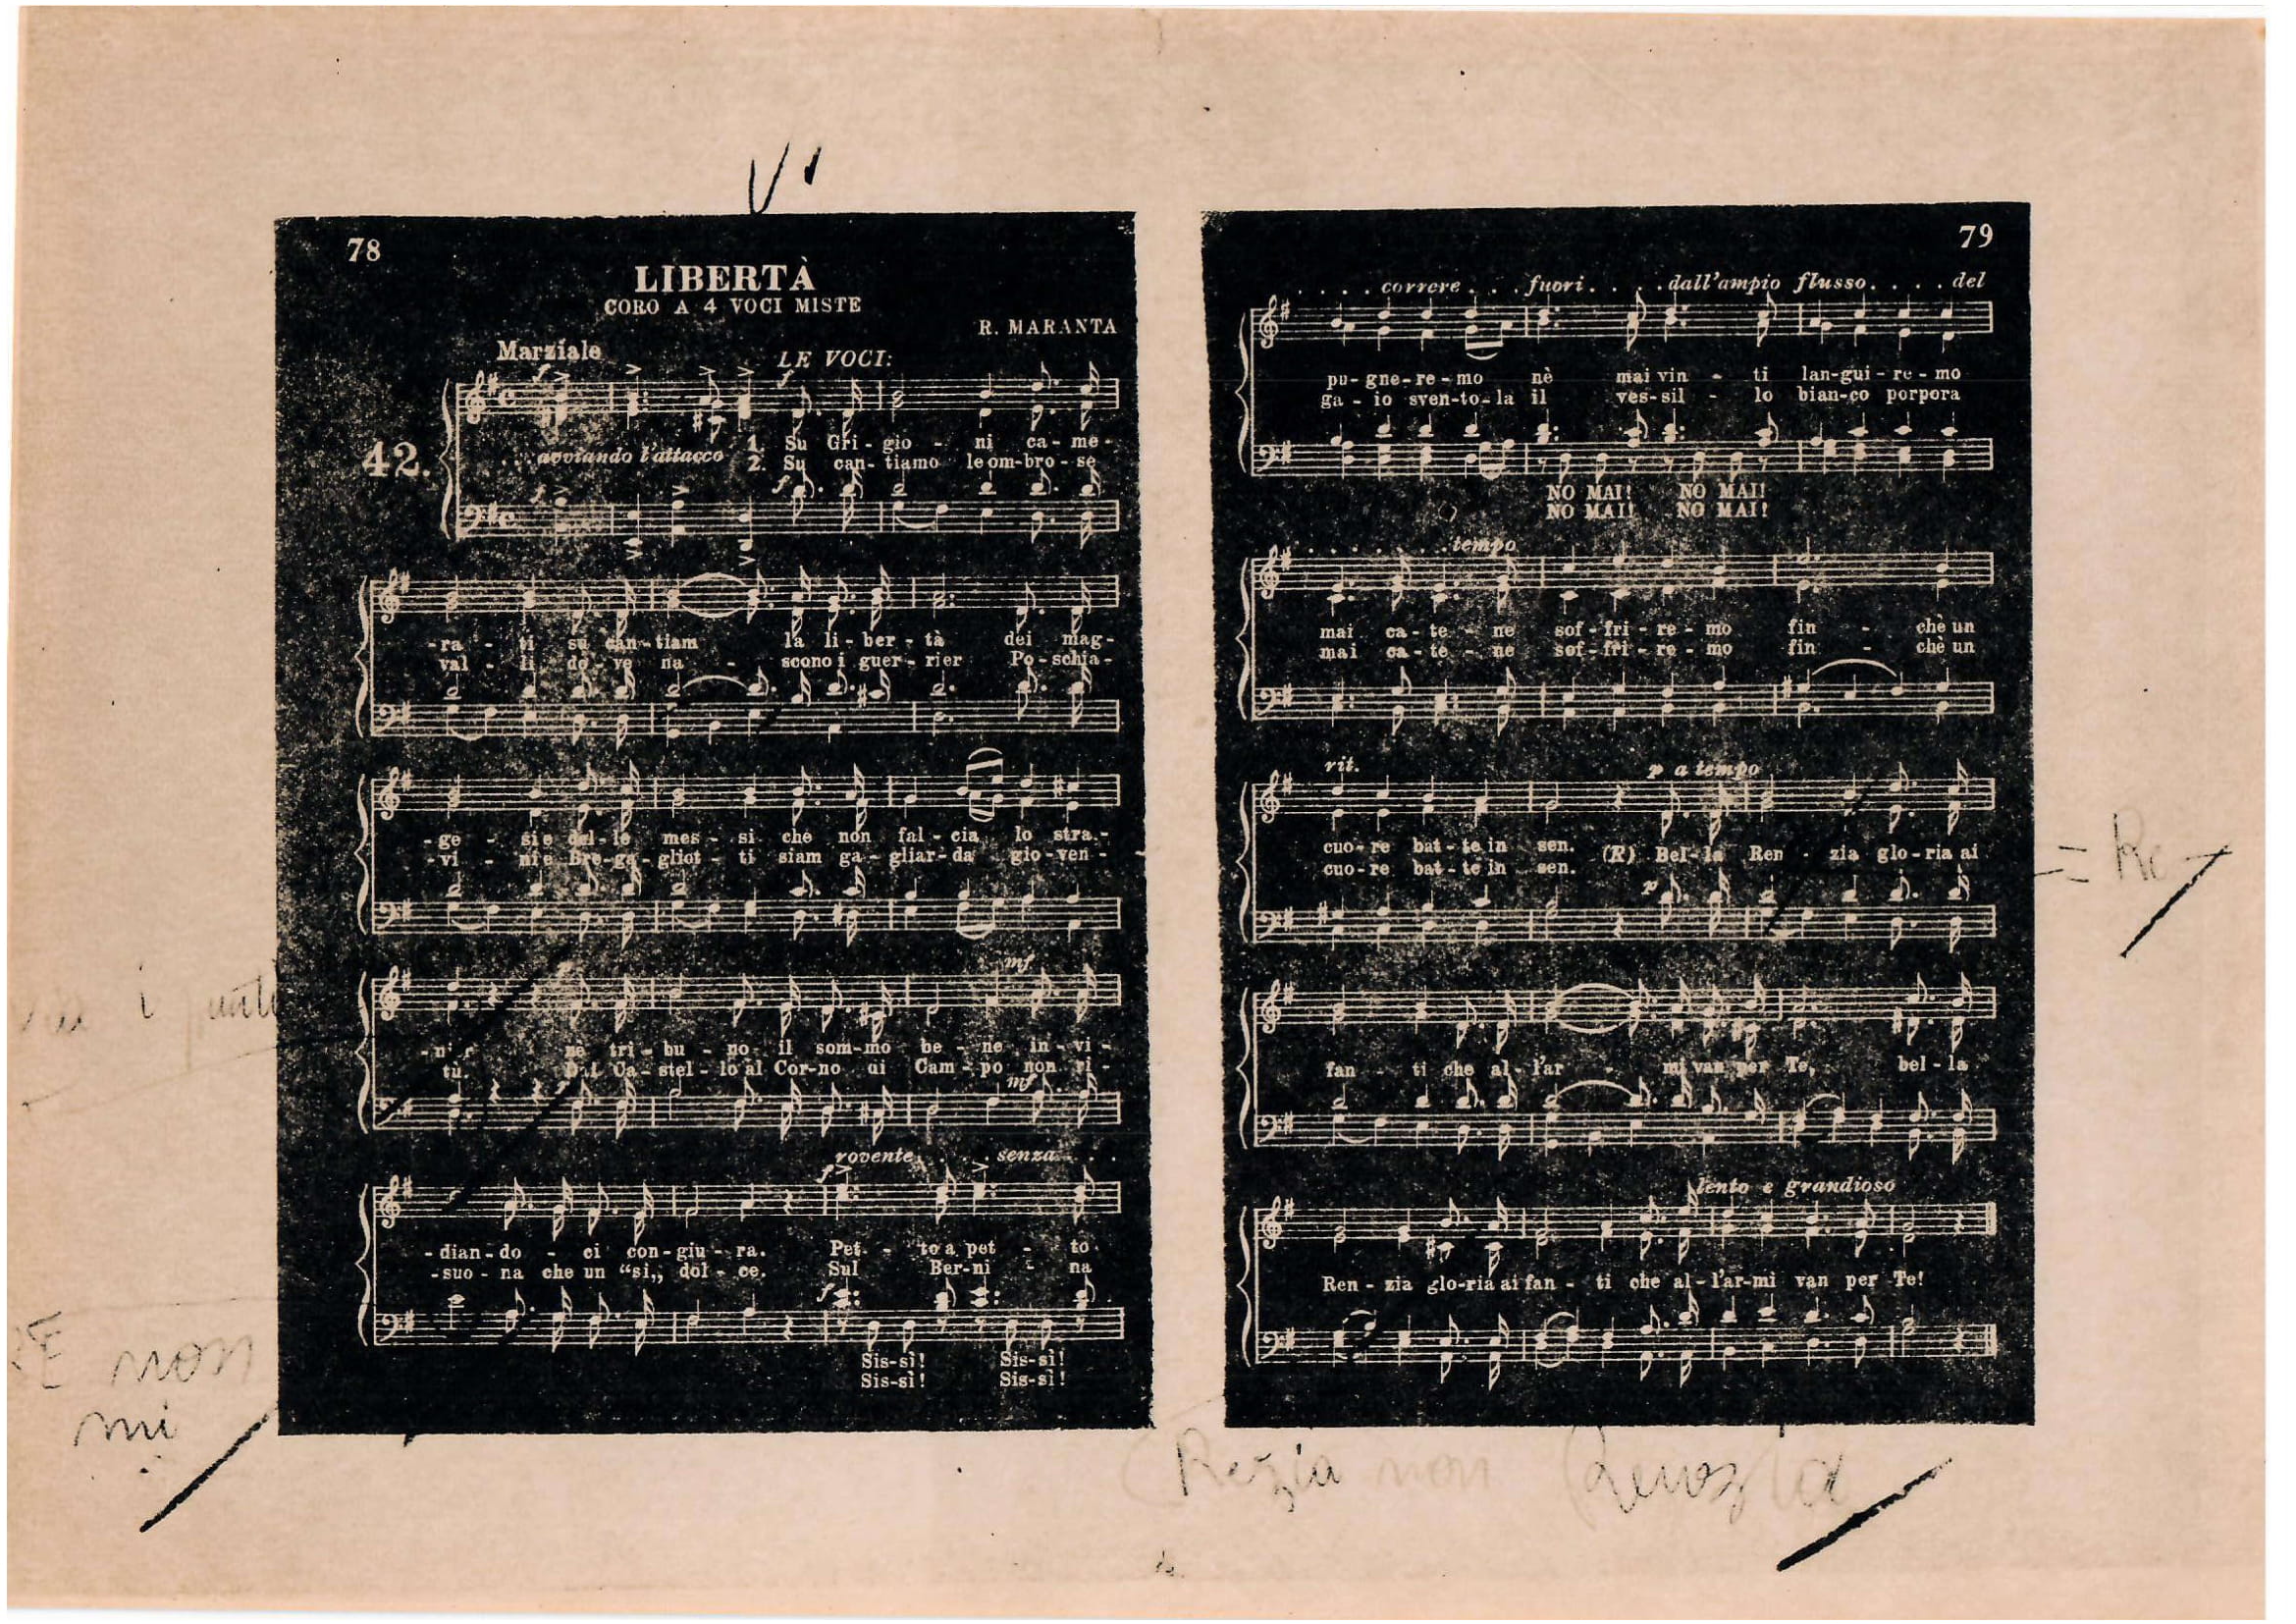 78
LIBERTÀ
CORO A 4 VOCI MISTE
R. MARANTA
Marziale
LE VOCI:
42.
avviando l'attacco
1. Su Gri - gio - ni ca - me -
2. Su can - tiamo le om - bro - se
-ra - ti su can - tiam la li - ber - tà dei mag -
val - li do - ve na - scono i guer - rier Po - schia -
-ge - si e del - le mes - si che non fal - cia lo stra -
-vi - ni e Bre - ga - gliot - ti siam ga - gliar - da gio - ven -
mf
ne tri - bu - no il som - mo be - ne in - vi -
tù. Dal Ca - stel - lo al Cor - no Cam - po non ri -
mf
rovente . . senza . . .
f
- dian - do - ci con - giu - ra. Pet - to a pet - to
- suo - na che un “si„ dol - ce. Sul Ber - ni - na
f
Sis - sì! Sis - sì!
Sis - sì! Sis - sì!
79
. . . . correre . . . fuori . . . . dall'ampio flusso . . . . del
pu - gne - re - mo nè mai vin - ti lan - gui - re - mo
ga - io sven - to - la il ves - sil - lo bian - co porpora
NO MAI! NO MAI!
NO MAI! NO MAI!
. . . . . . . tempo
mai ca - te - ne sof - fri - re - mo fin - chè un
mai ca - te - ne sof - fri - re - mo fin - chè un
rit. p a tempo
cuo - re bat - te in sen. (R) Bel - la Ren - zia glo - ria ai
cuo - re bat - te in sen.
p
fan - ti che al - l'ar - mi van per Te, bel - la
lento e grandioso
Ren - zia glo - ria ai fan - ti che al - l'ar - mi van per Te!
i punti
non
mi
= Re
Rezia non Renzia